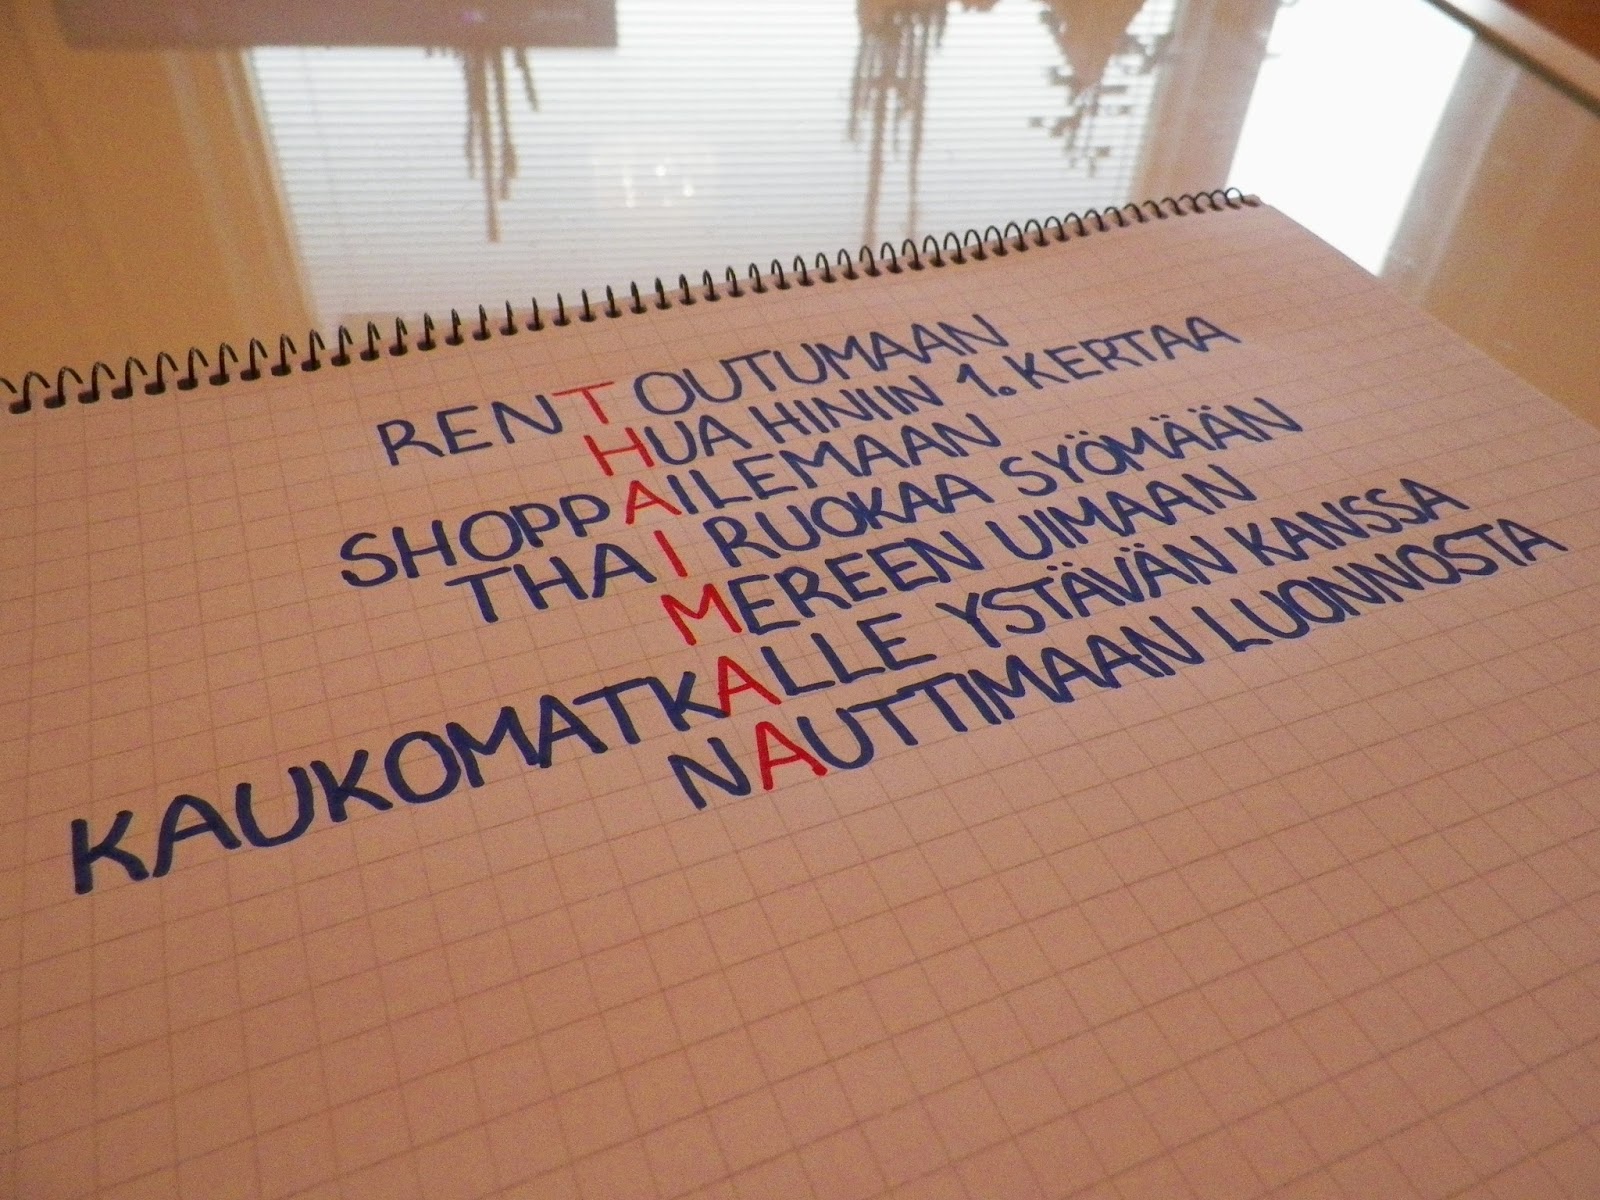 RENTOUTUMAAN
HUA HINIIN 1. KERTAA
SHOPPAILEMAAN
THAI RUOKAA SYÖMÄÄN
MEREEN UIMAAN
KAUKOMATKALLE YSTÄVÄN KANSSA
NAUTTIMAAN LUONNOSTA